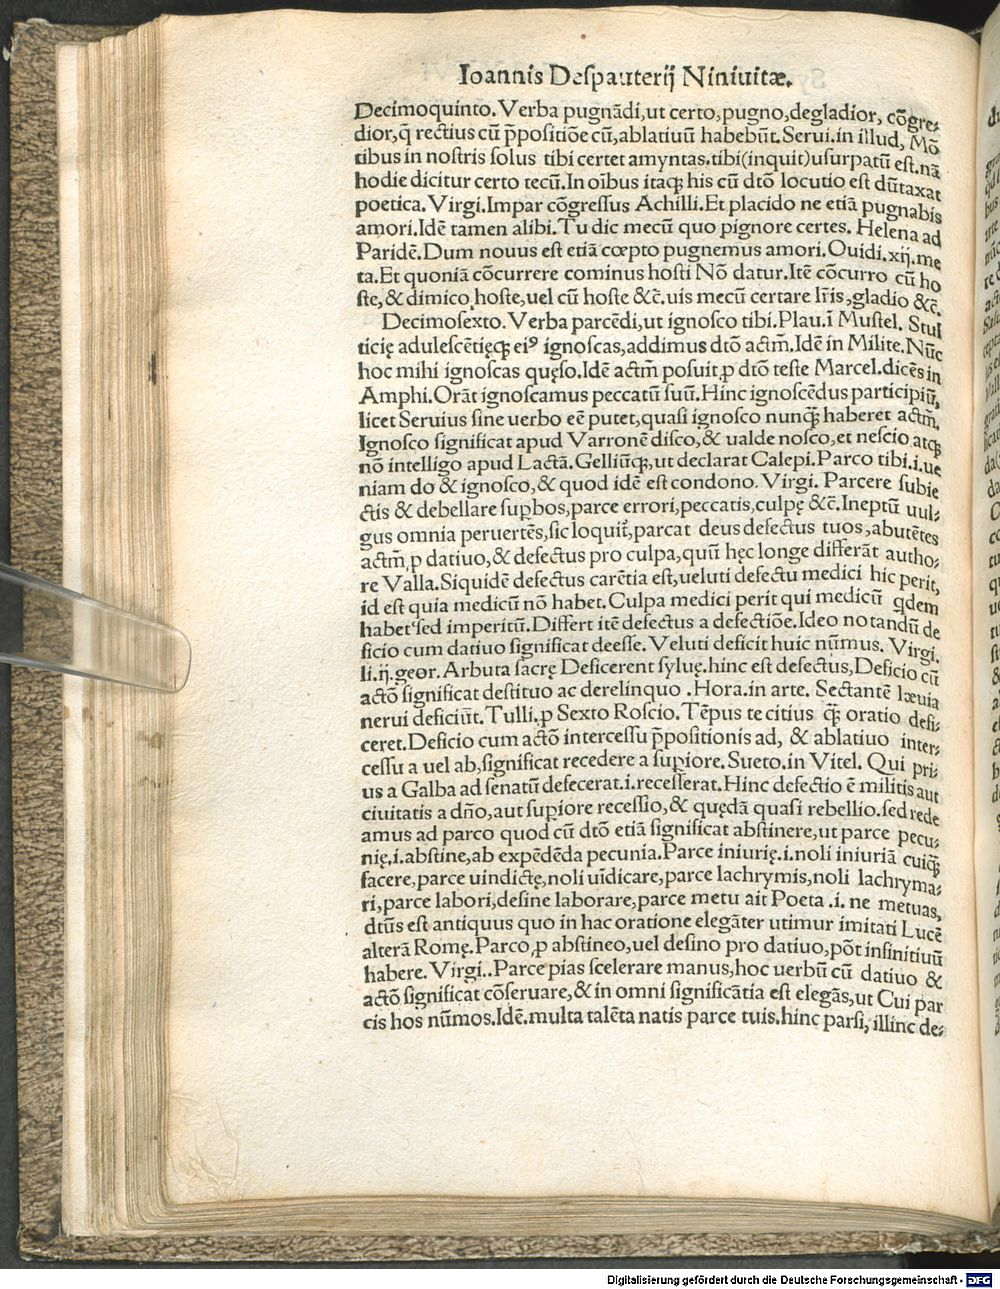 Ioannis Deſpauterij Niniuitæ.
Decimoquinto. Verba pugnãdi, ut certo, pugno, degladior, cõgre⸗
dior, q̃ rectius cũ p̃poſitiõe cũ, ablatiuũ habebũt. Serui. in illud, Mõ
tibus in noſtris ſolus tibi certet amyntas. tibi (inquit) uſurpatũ eſt. nã
hodie dicitur certo tecũ. In oĩbus itaq; his cũ dtõ locutio eſt dũtaxat
poetica. Virgi. Impar cõgreſſus Achilli. Et placido ne etiã pugnabis
amori. Idẽ tamen alibi. Tu dic mecũ quo pignore certes. Helena ad
Paridẽ. Dum nouus eſt etiã cœpto pugnemus amori. Ouidi. xij. me
ta. Et quoniã cõcurrere cominus hoſti Nõ datur. Itẽ cõcurro cũ ho
ſte, & dimico hoſte, uel cũ hoſte &c̃. uis mecũ certare lr̃is, gladio &c̃.
Decimoſexto. Verba parcẽdi, ut ignoſco tibi. Plau. ĩ Muſtel. Stul
ticię adulescẽtięq; eiꝰ ignoſcas, addimus dtõ actm̃. Idẽ in Milite. Nũc
hoc mihi ignoſcas quęſo. Idẽ actm̃ poſuit ꝓ dtõ teſte Marcel. dicẽs in
Amphi. Orãt ignoſcamus peccatũ ſuũ. Hinc ignoſcẽdus participiũ,
licet Seruius ſine uerbo eẽ putet, quaſi ignoſco nunq̃ haberet actm̃.
Ignoſco ſignificat apud Varronẽ diſco, & ualde noſco, et neſcio atq;
nõ intelligo apud Lactã. Gelliũq;, ut declarat Calepi. Parco tibi. i. ue
niam do & ignoſco, & quod idẽ eſt condono. Virgi. Parcere ſubie
ctis & debellare ſuꝑbos, parce errori, peccatis, culpę &c̃. Ineptũ uul⸗
gus omnia peruertẽs, ſic loquit̃, parcat deus defectus tuos, abutẽtes
actm̃ ꝓ datiuo, & defectus pro culpa, quũ hęc longe differãt autho⸗
re Valla. Siquidẽ defectus carẽtia eſt, ueluti defectu medici hic perit,
id eſt quia medicũ nõ habet. Culpa medici perit qui medicũ qdem
habet ſed imperitũ. Differt itẽ defectus a defectiõe. Ideo notandũ de
ficio cum datiuo ſignificat deeſſe. Veluti deficit huic nũmus. Virgi.
li. ij. geor. Arbuta ſacrę Deficerent ſyluę. hinc eſt defectus, Deficio cũ
actõ ſignificat deſtituo ac derelinquo. Hora. in arte. Sectantẽ læuia
nerui deficiũt. Tulli. ꝓ Sexto Roſcio. Tẽpus te citius q̃ oratio defi⸗
ceret. Deficio cum actõ interceſſu p̃poſitionis ad, & ablatiuo inter⸗
ceſſu a uel ab, ſignificat recedere a ſuꝑiore. Sueto. in Vitel. Qui pri⸗
us a Galba ad ſenatũ defecerat. i. receſſerat. Hinc defectio ẽ militis aut
ciuitatis a dño, aut ſuꝑiore receſſio, & quędã quaſi rebellio. ſed rede
amus ad parco quod cũ dtõ etiã ſignificat abſtinere, ut parce pecu⸗
nię. i. abſtine, ab expẽdẽda pecunia. Parce iniurię. i. noli iniuriã cuiq̃
facere, parce uindictę, noli uĩdicare, parce lachrymis, noli lachryma⸗
ri, parce labori, deſine laborare, parce metu ait Poeta .i. ne metuas,
dtũs eſt antiquus quo in hac oratione elegãter utimur imitati Lucẽ
alterã Romę. Parco, ꝓ abſtineo, uel deſino pro datiuo, põt infinitiuũ
habere. Virgi.. Parce pias ſcelerare manus, hoc uerbũ cũ datiuo &
actõ ſignificat cõſeruare, & in omni ſignificãtia eſt elegãs, ut Cui par
cis hos nũmos. Idẽ. multa talẽta natis parce tuis. hinc parſi, illinc de⸗
Digitalisierung gefördert durch die Deutsche Forschungsgemeinschaft - DFG